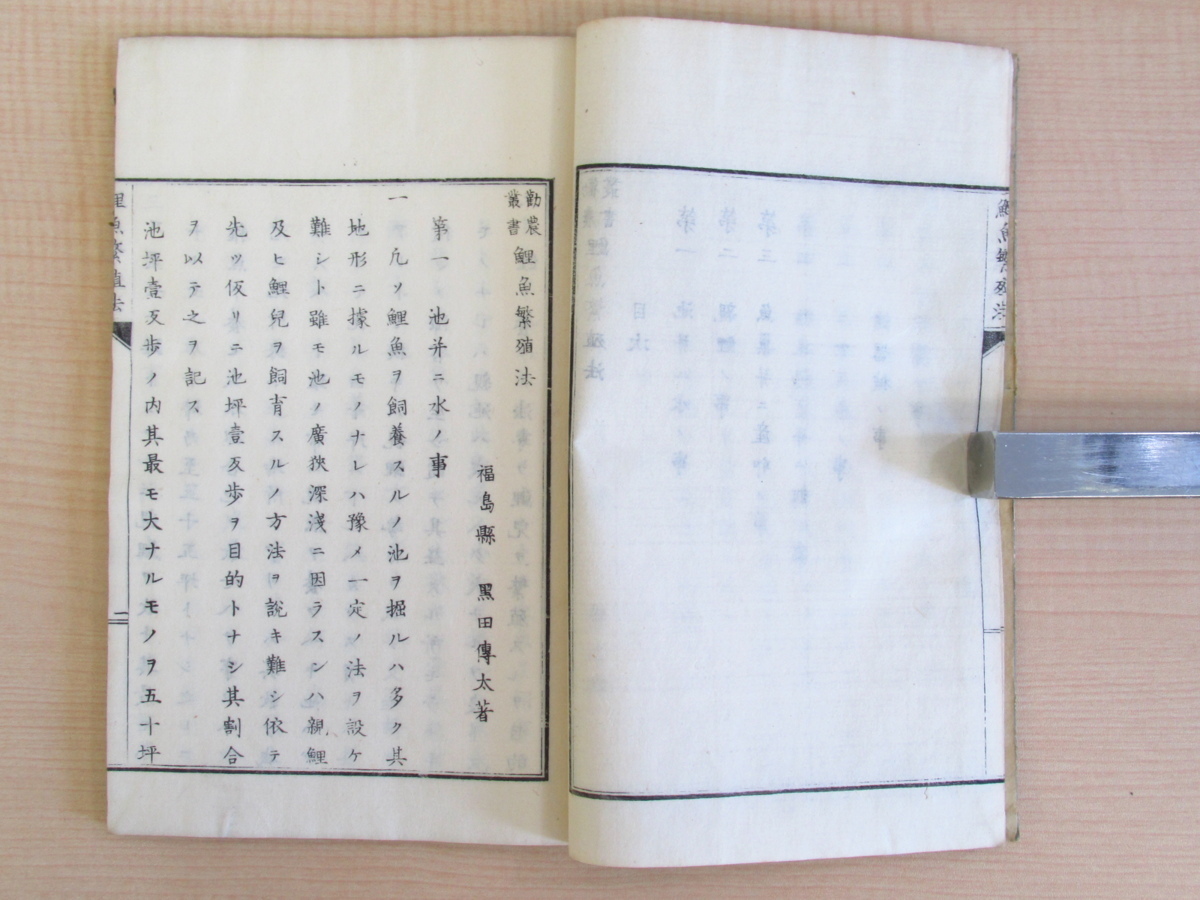 鯉魚繁殖法
勸農叢書 鯉魚繁殖法
福島縣 黒田傳太著
第一 池并ニ水ノ事
一 凡ソ鯉魚ヲ飼養スルノ池ヲ掘ルハ多ク其
地形ニ據ルモノナレハ豫メ一定ノ法ヲ設ケ
難シト雖モ池ノ廣狹深淺ニ因ラスンハ親鯉
及ヒ鯉兒ヲ飼育スルノ方法ヲ説キ難シ依テ
先ツ仮リニ池坪壹反歩ヲ目的トナシ其割合
ヲ以テ之ヲ記ス
池坪壹反歩ノ内其最モ大ナルモノヲ五十坪
鯉魚繁殖法
二